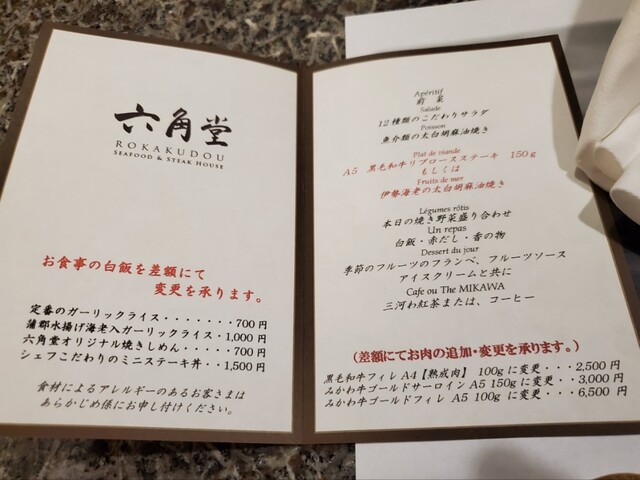 六角堂
ROKAKUDOU
SEAFOOD & STEAK HOUSE
お食事の白飯を差額にて
変更を承ります。
定番のガーリックライス・・・・・・・700円
蒲郡水揚げ海老入ガーリックライス・1,000円
六角堂オリジナル焼きしめん・・・・・700円
シェフこだわりのミニステーキ丼・・1,500円
食材によるアレルギーのあるお客さまは
あらかじめ係にお申し付けください。
Apéritif
前菜
Salade
12種類のこだわりサラダ
Poisson
魚介類の太白胡麻油焼き
Plat de viande
A5 黒毛和牛リブロースステーキ 150g
もしくは
Fruits de mer
伊勢海老の太白胡麻油焼き
Légumes rôtis
本日の焼き野菜盛り合わせ
Un repas
白飯・赤だし・香の物
Dessert du jour
季節のフルーツのフランベ、フルーツソース
アイスクリームと共に
Cafe ou The MIKAWA
三河わ紅茶または、コーヒー
(差額にてお肉の追加・変更を承ります。)
黒毛和牛フィレ A4【熟成肉】 100gに変更・・・2,500円
みかわ牛ゴールドサーロイン A5 150gに変更・・3,000円
みかわ牛ゴールドフィレ A5 100g に変更・・・6,500円